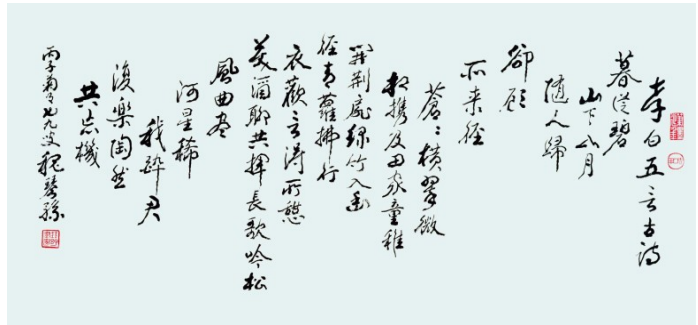 李白五言古诗
暮從碧
山下山月
隨人歸
卻顧
所来徑
蒼々橫翠微
相携及田家童稚
開荆扉綠竹入幽
徑青蘿拂行
衣歡言得所憩
美酒聊共揮長歌吟松
風曲盡
河星稀
我醉君
復樂陶然
共忘機
丙子菊月七九叟魏